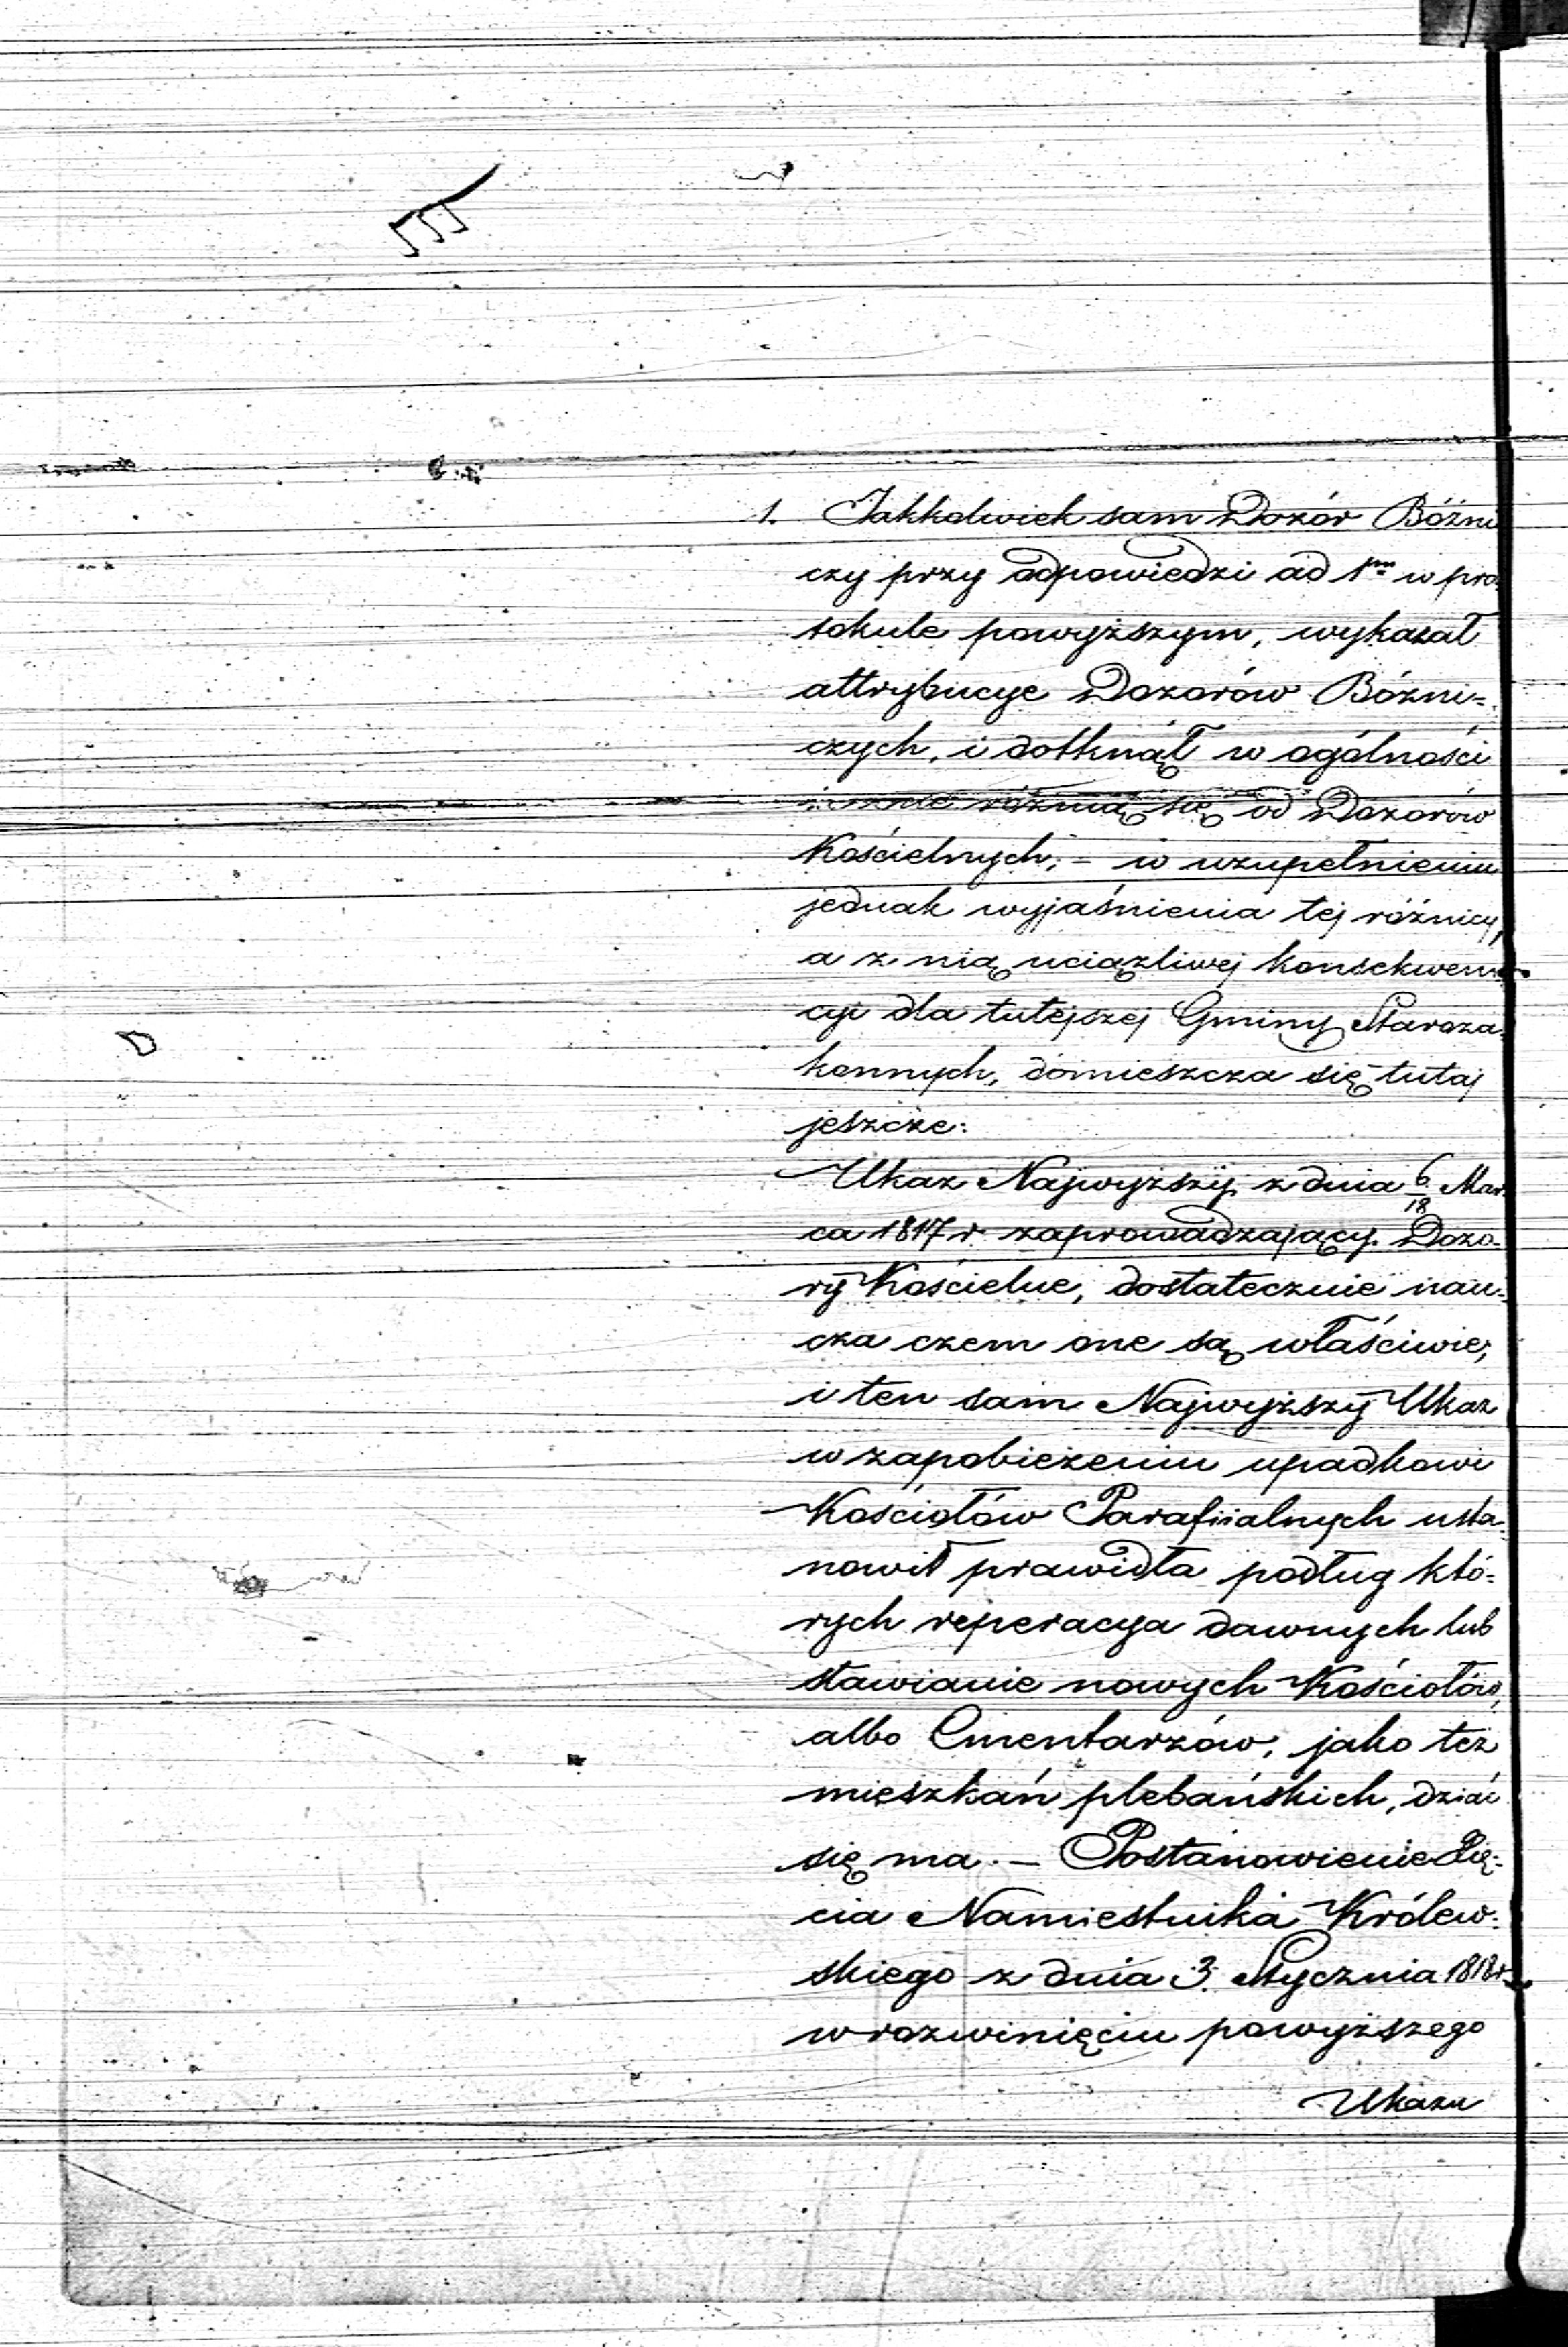 1. Jakkolwiek sam Dozór Bóźni
czy przy odpowiedzi ad 1<sup>m</sup> w pro
tokule powyższym, wykazał
attrybucye Dozorów Bózni=
czych, i dotknął w ogólności
różnią się od Dozorów
Kościelnych; – w uzupełnieniu
jednak wyjaśnienia tej różnicy,
a z nią uciązliwej konsekwen
cyi dla tutejszej Gminy Staroza
konnych, domieszcza się tutaj
jeszcze:
Ukaz Najwyższy z dnia 6/18 Mar
ca 1817 r zaprowadzający Dozo-
ry Kościelne, dostatecznie nau-
cza czem one są właściwie;
i ten sam Najwyższy Ukaz
w zapobieżeniu upadkowi
Kościołów Parafiialnych usta-
nowił prawidła podług któ-
rych reperacya dawnych lub
stawianie nowych Kościołów,
albo Cmentarzów, jako też
mieszkań plebańskich, dziać
się ma. – Postanowienie
cia Namiestnika Królew-
skiego z dnia 3. Stycznia 1818 r.
w rozwinięciu powyższego
Ukazu